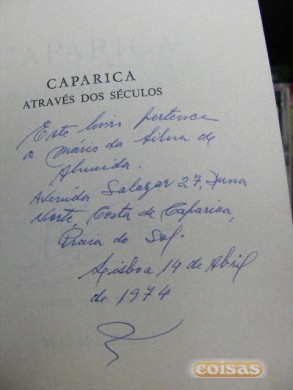 CAPARICA
ATRAVÉS DOS SÉCULOS
Este livro pertence
a Mário da Silva de
Almeida.
Avenida Salazar 27, Duna
Norte, Costa de Caparica,
Praia do Sol.
Lisboa 14 de Abril
de 1974
coisas